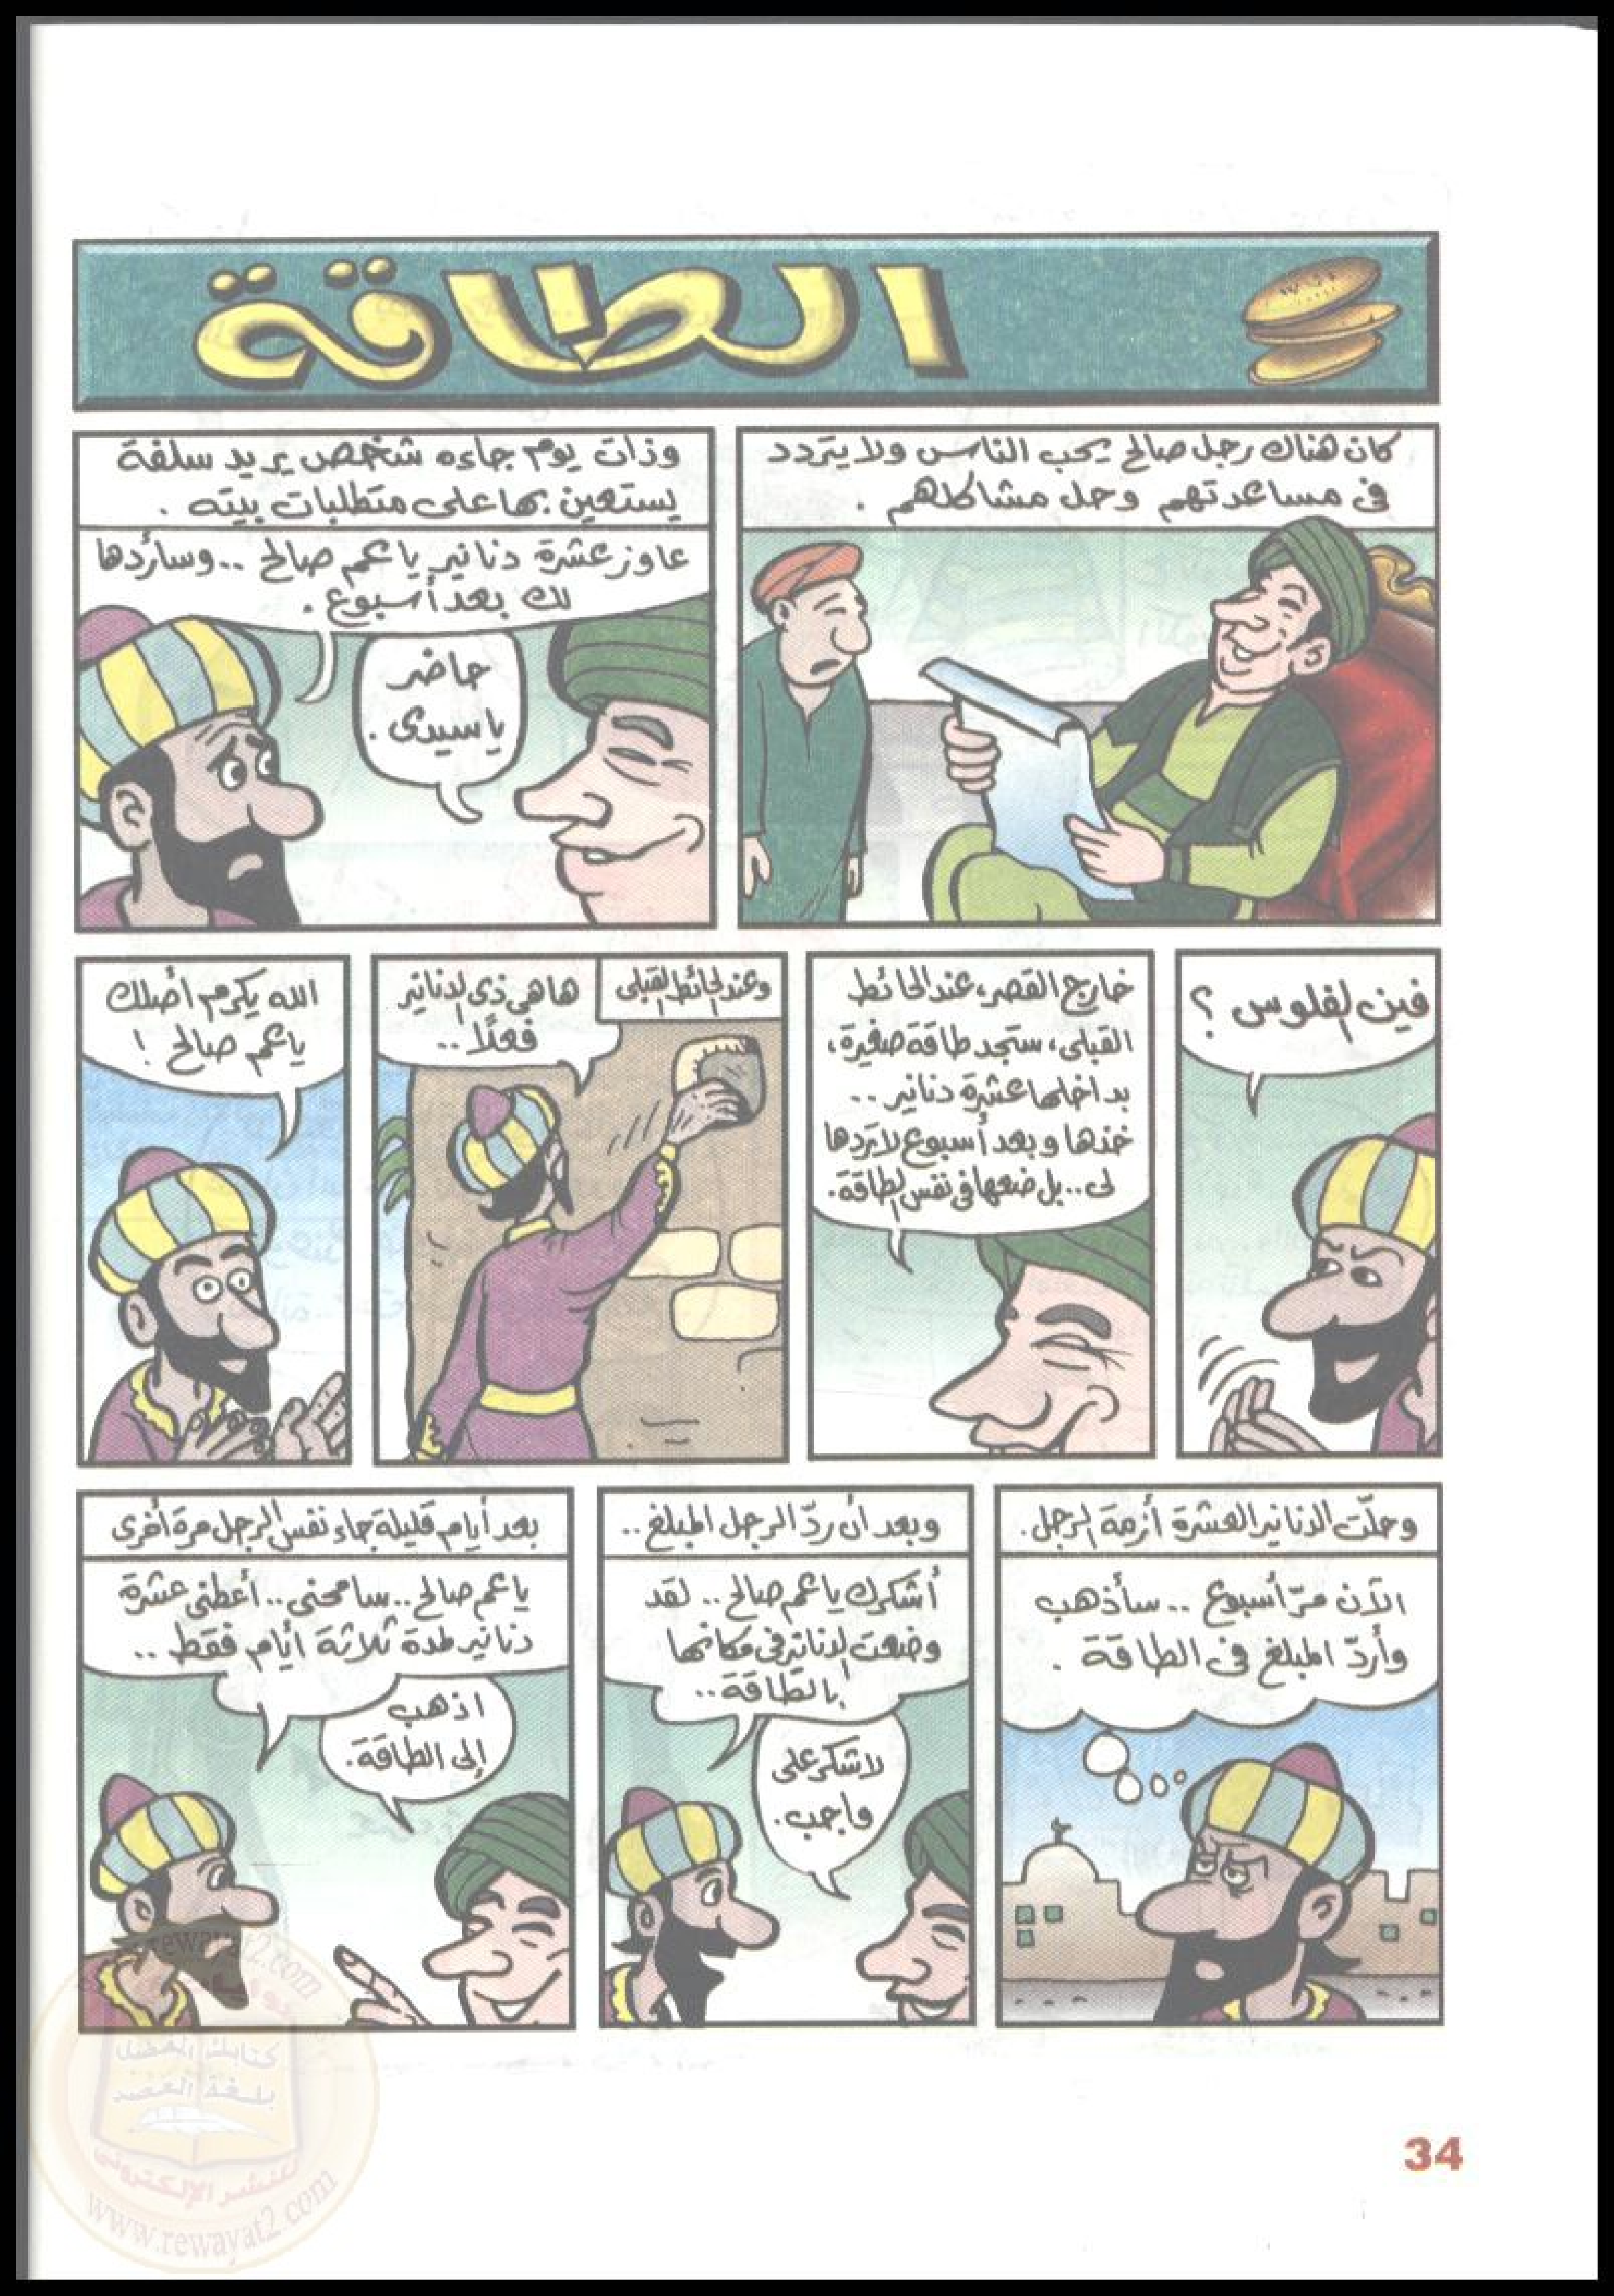 الطاقة
كان هناك رجل صالح يحب الناس ولا يتردد
فى مساعدتهم وحل مشاكلهم .
وذات يوم جاءه شخص يريد سلفة
يستعين بها على متطلبات بيته .
عاوز عشرة دنانير يا عم صالح .. وسأردها
لك بعد أسبوع .
حاضر
يا سيدى .
فين الفلوس ؟
خارج القصر، عند الحائط
القبلى، ستجد طاقة صغيرة،
بداخلها عشرة دنانير ..
خذها وبعد أسبوع لا تردها
لى .. بل ضعها فى نفس الطاقة.
وعند الحائط القبلى
ها هى ذى الدنانير
فعلًا ..
الله يكرم أصلك
يا عم صالح !
وحلّت الدنانير العشرة أزمة الرجل.
الآن مرّ أسبوع .. سأذهب
وأردّ المبلغ فى الطاقة .
وبعد أن ردّ الرجل المبلغ ..
أشكرك يا عم صالح .. لقد
وضعت الدنانير فى مكانها
بالطاقة ..
لا شكر على
واجب .
بعد أيام قليلة جاء نفس الرجل مرة أخرى
يا عم صالح .. سامحنى .. أعطنى عشرة
دنانير لمدة ثلاثة أيام فقط ..
اذهب
إلى الطاقة.
rewayat2.com
كتابك المفضل
بلغة العصر
للنشر الإلكترونى
www.rewayat2.com
34